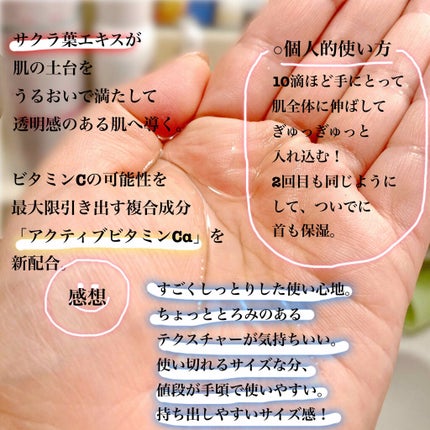 サクラ葉エキスが
肌の土台を
うるおいで満たして
透明感のある肌へ導く。
ビタミンCの可能性を
最大限引き出す複合成分
「アクティブビタミンCα」を
新配合。
○個人的使い方
10滴ほど手にとって
肌全体に伸ばして
ぎゅっぎゅっと
入れ込む！
2回目も同じように
して、ついでに
首も保湿。
感想
すごくしっとりした使い心地。
ちょっととろみのある
テクスチャーが気持ちいい。
使い切れるサイズな分、
値段が手頃で使いやすい。
持ち出しやすいサイズ感！